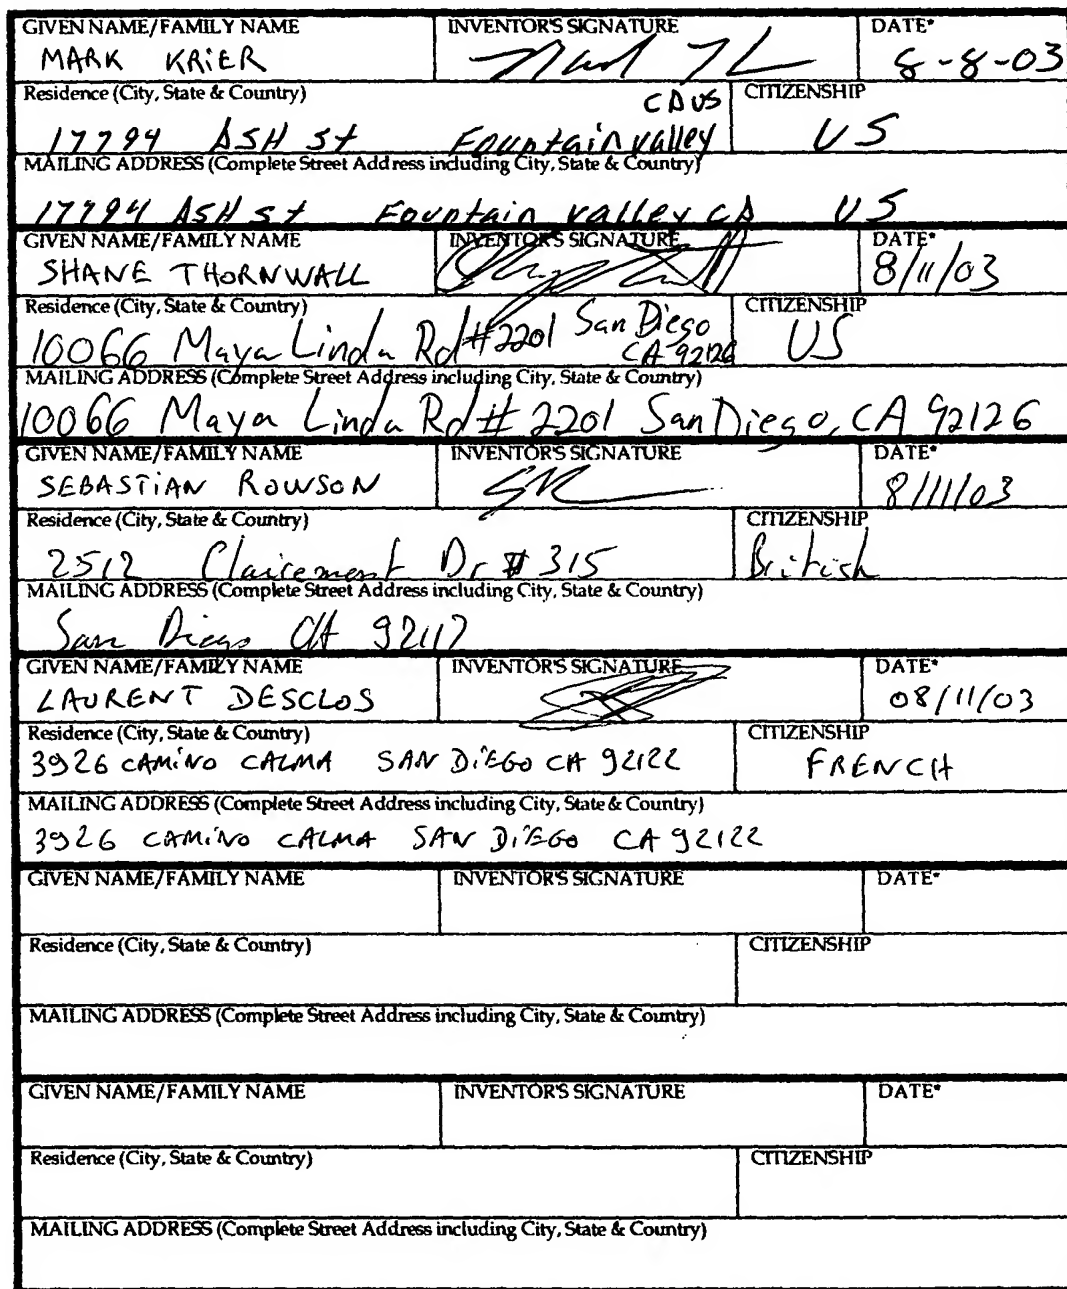 GIVEN NAME/FAMILY NAME INVENTOR'S SIGNATURE DATE*
MARK KRIER 8-8-03
Residence (City, State & Country) CITIZENSHIP
CA US
17794 ASH St Fountain valley US
MAILING ADDRESS (Complete Street Address including City, State & Country)
17794 ASH st Fountain valley CA US
GIVEN NAME/FAMILY NAME INVENTOR'S SIGNATURE DATE*
SHANE THORNWALL 8/11/03
Residence (City, State & Country) CITIZENSHIP
10066 Maya Linda Rd #2201 San Diego US
CA 92126
MAILING ADDRESS (Complete Street Address including City, State & Country)
10066 Maya Linda Rd # 2201 San Diego, CA 92126
GIVEN NAME/FAMILY NAME INVENTOR'S SIGNATURE DATE*
SEBASTIAN ROWSON SR 8/11/03
Residence (City, State & Country) CITIZENSHIP
2512 Clairemont Dr # 315 British
MAILING ADDRESS (Complete Street Address including City, State & Country)
San Diego CA 92117
GIVEN NAME/FAMILY NAME INVENTOR'S SIGNATURE DATE*
LAURENT DESCLOS 08/11/03
Residence (City, State & Country) CITIZENSHIP
3926 CAMINO CALMA SAN DIEGO CA 92122 FRENCH
MAILING ADDRESS (Complete Street Address including City, State & Country)
3926 CAMINO CALMA SAN DIEGO CA 92122
GIVEN NAME/FAMILY NAME INVENTOR'S SIGNATURE DATE*
Residence (City, State & Country) CITIZENSHIP
MAILING ADDRESS (Complete Street Address including City, State & Country)
GIVEN NAME/FAMILY NAME INVENTOR'S SIGNATURE DATE*
Residence (City, State & Country) CITIZENSHIP
MAILING ADDRESS (Complete Street Address including City, State & Country)